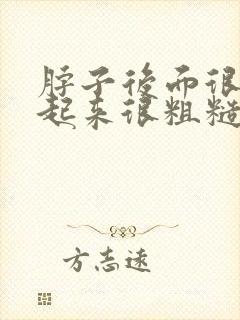 脖子後面很
起来很粗糙
方志远